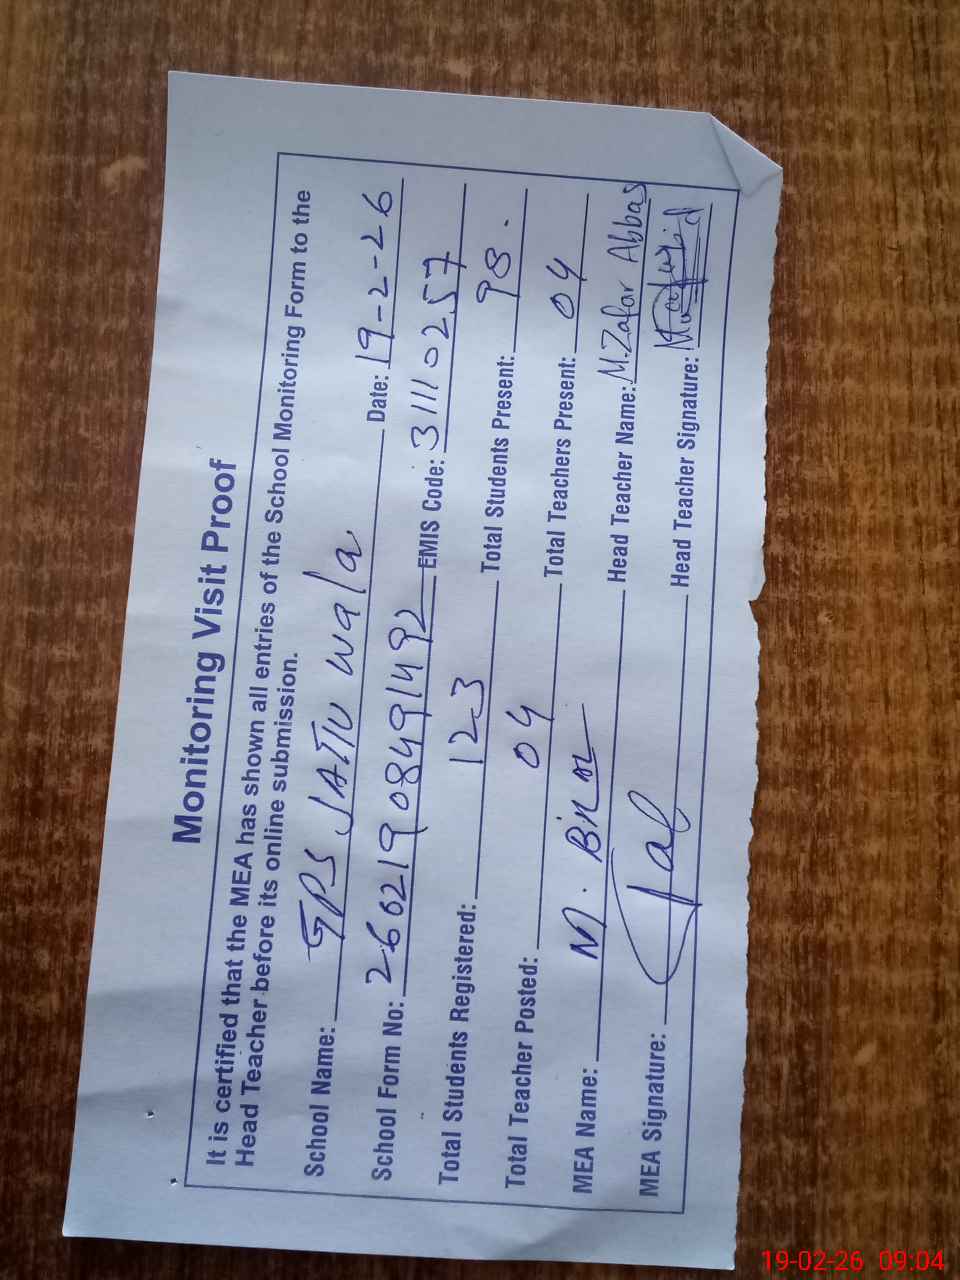 Monitoring Visit Proof
It is certified that the MEA has shown all entries of the School Monitoring Form to the
Head Teacher before its online submission.
School Name: GPS JAITU Wala Date: 19-2-26
School Form No: 26021908491492 EMIS Code: 31110257
Total Students Registered: 123 Total Students Present: 98.
Total Teacher Posted: 04 Total Teachers Present: 04
MEA Name: M. Bilal Head Teacher Name: M. Zafar Abbas
MEA Signature: Head Teacher Signature:
19-02-26 09:04